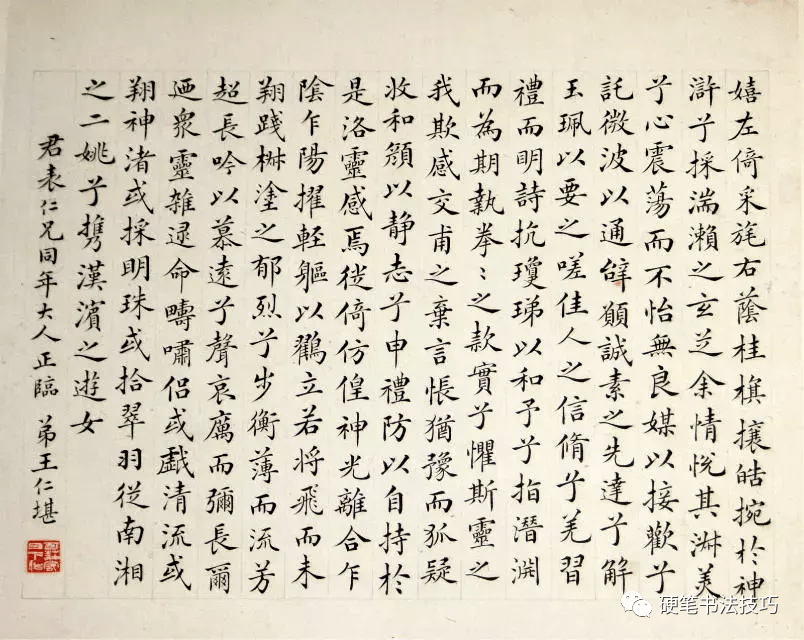 嬉左倚采旄右蔭桂旗攘皓捥於神
滸兮採湍瀨之玄芝余情悅其淋美
兮心震蕩而不怡無良媒以接歡兮
託微波以通辭願誠素之先達兮解
玉珮以要之嗟佳人之信脩兮羌習
禮而明詩抗瓊珶以和予兮指潛淵
而為期執拳〻之款實兮懼斯靈之
我欺感交甫之棄言悵猶豫而狐疑
收和顏以静志兮申禮防以自持於
是洛靈感焉徙倚仿偟神光離合乍
陰乍陽擢軽軀以鸛立若将飛而未
翔踐椒塗之郁烈兮步衡薄而流芳
超長吟以慕遠兮聲哀厲而彌長爾
迺衆靈雜遝命疇嘯侶或戲清流或
翔神渚或採明珠或拾翠羽從南湘
之二姚兮攜漢濱之遊女
君表仁兄同年大人正臨 弟王仁堪
硬笔书法技巧